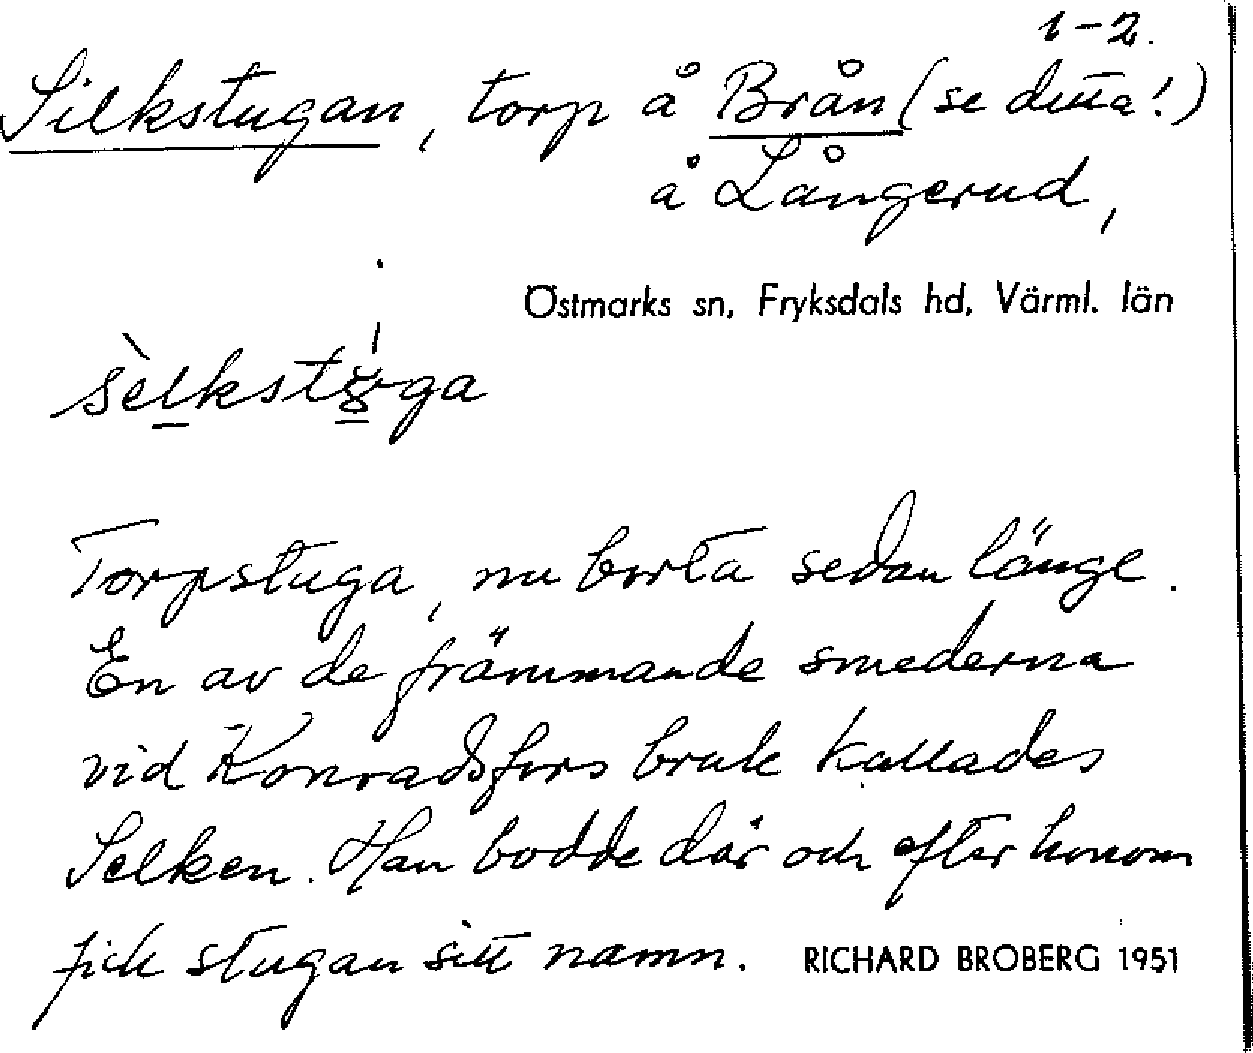 1-2.
Silkstugan, torp å Brån (se detta!)
å Långerud,
Östmarks sn, Fryksdals hd, Värml. län
Torpstuga, nu borta sedan länge.
En av de främmande smederna
vid Konradsfors bruk kallades
Selken. Han bodde där och efter honom
fick stugan sitt namn. RICHARD BROBERG 1951